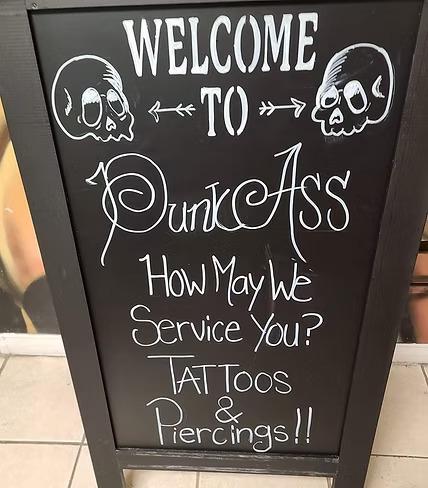 WELCOME
TO
PunkAss
How May We
Service You?
TATTOOS
&
Piercings!!